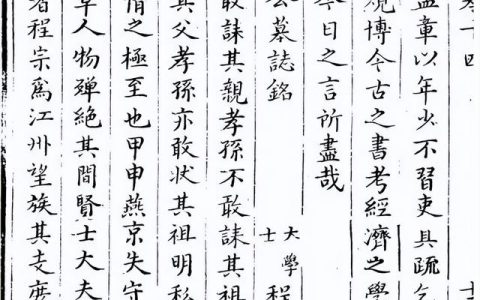 卷十四
孟章以年少不習吏具疏乞
規博今古之書考經濟之學
今日之言所盡哉
公墓誌銘 大學士 程
敢誄其親孝孫不敢誄其祖
其父孝孫亦敢狀其祖明
情之極至也甲申燕京失守
人物殫絕其間賢士大夫
程宗爲江州望族其支庶